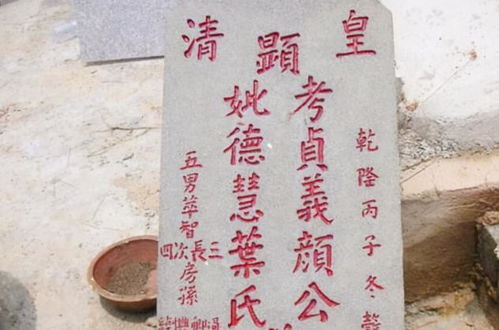 皇清
顯
乾隆丙子冬
考貞義顏公
妣德慧葉氏
五男萃智
三長次四
房孫